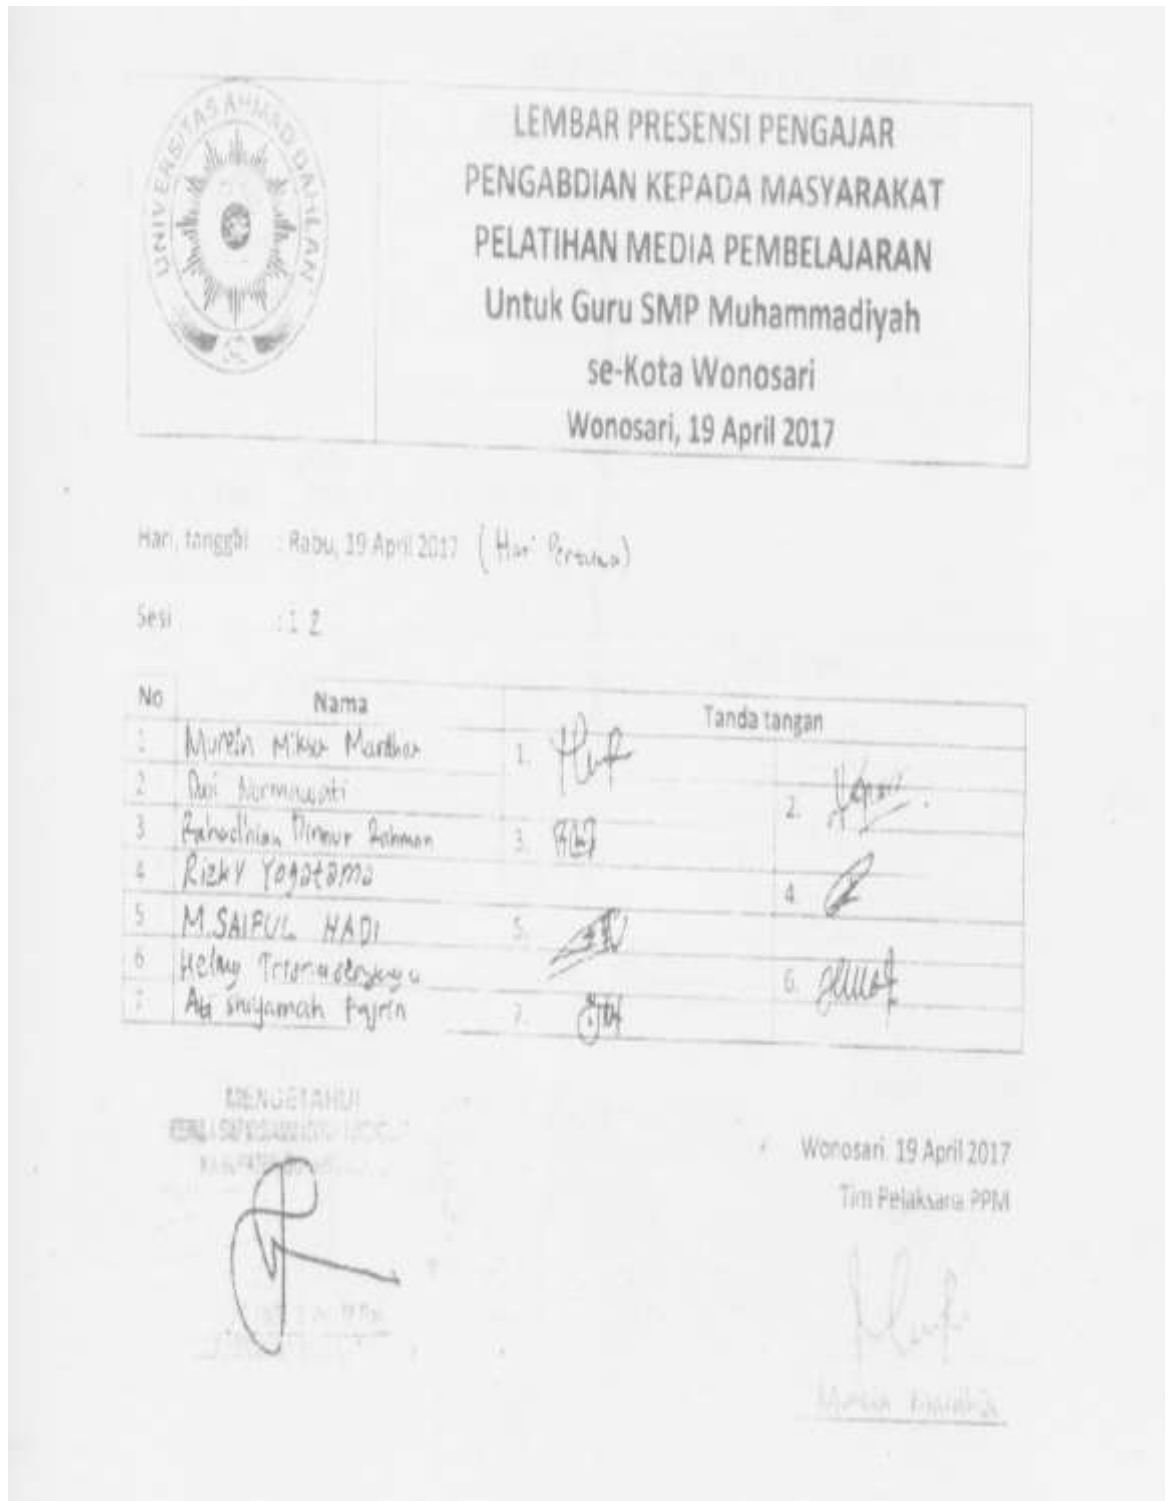 UNIVERSITAS AHMAD DAHLAN
LEMBAR PRESENSI PENGAJAR
PENGABDIAN KEPADA MASYARAKAT
PELATIHAN MEDIA PEMBELAJARAN
Untuk Guru SMP Muhammadiyah
se-Kota Wonosari
Wonosari, 19 April 2017
Hari, tanggal : Rabu, 19 April 2017 (Hari Pertama)
Sesi : 1 2
No Nama Tanda tangan
1 Murein Miksa Mardhia 1.
2 Dwi Normawati 2.
3 Dinnur Rahman 3.
4 Rizky Yogatama 4.
5 M.SAIFUL HADI 5.
6 Helmy 6.
7 Fajrin 7.
MENGETAHUI
Wonosari, 19 April 2017
Tim Pelaksana PPM
Murein Mardhia